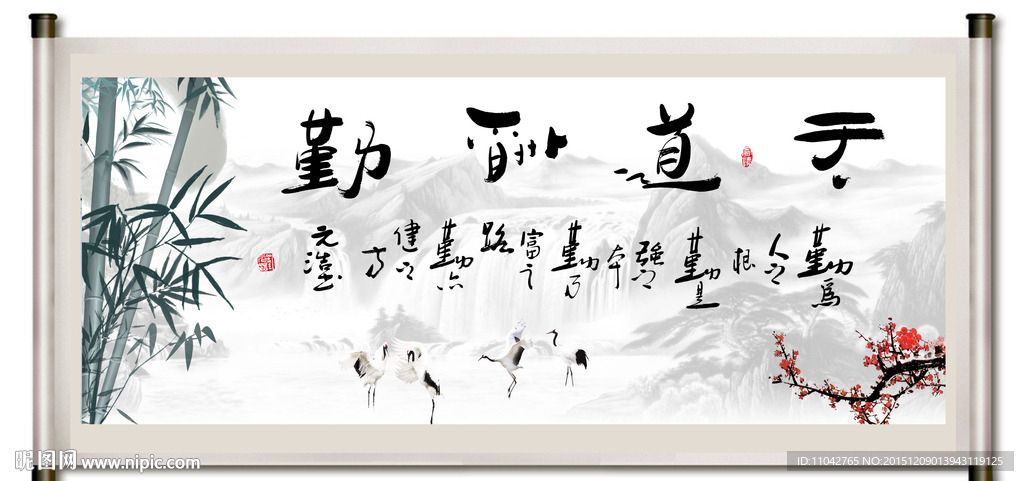 天道酬勤
勤爲人之根勤是強之本勤乃富之路勤亦健之方
昵图网 www.nipic.com
ID:11042765 NO:20151209013943119125